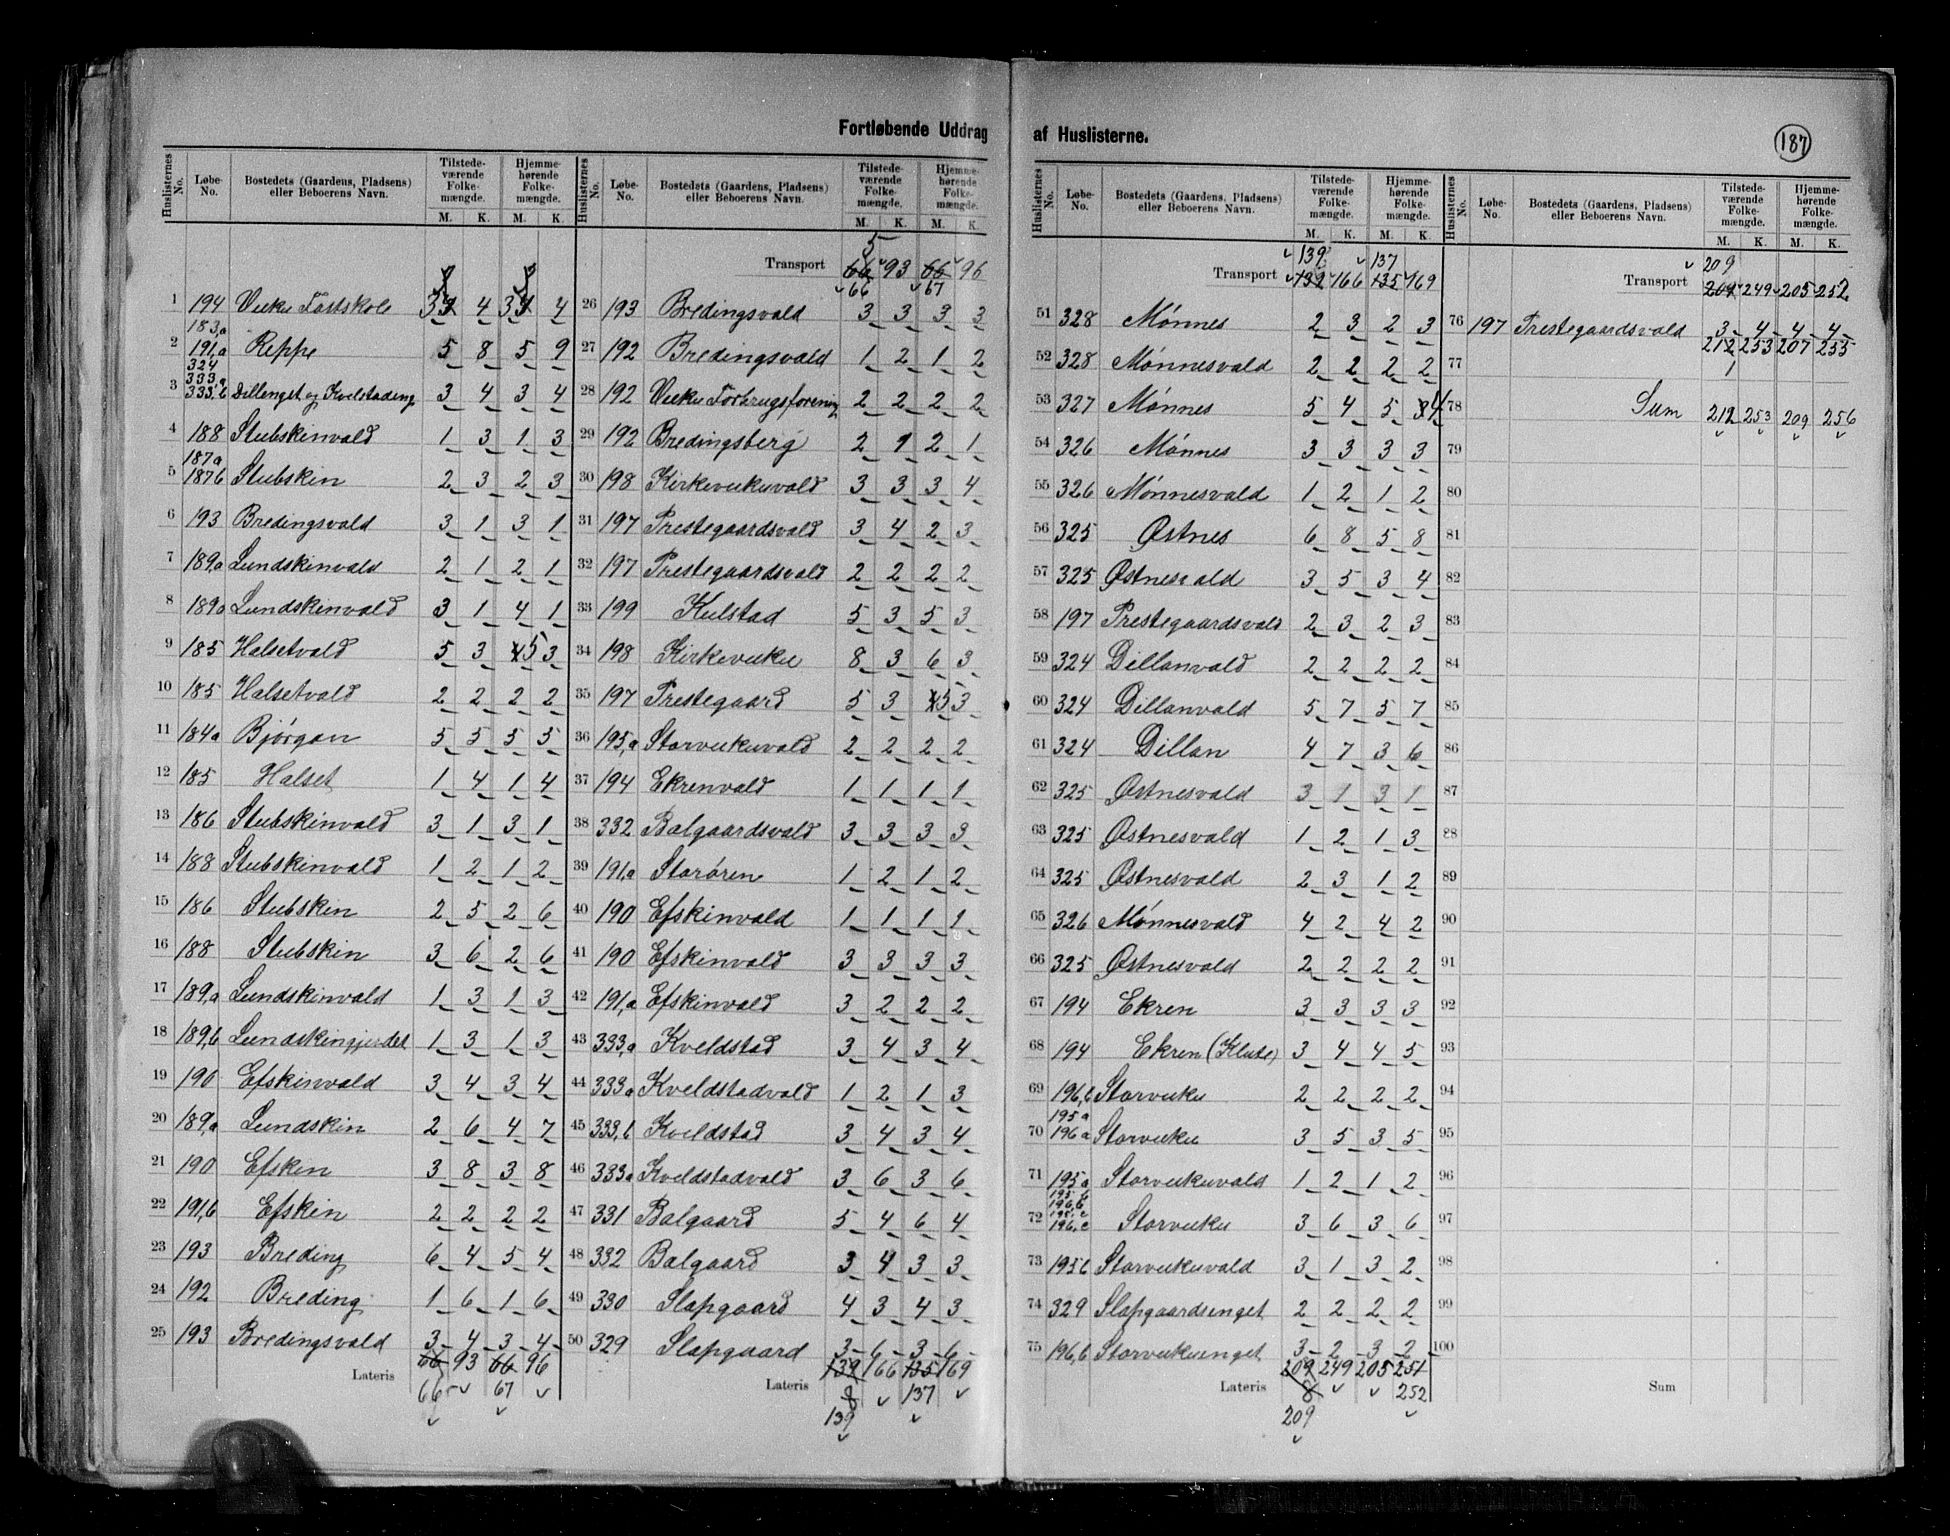 Fortløbende Uddrag af Huslisterne.
187
Huslisternes No. Løbe-No. Bostedets (Gaardens, Pladsens) eller Beboerens Navn. Tilstedeværende Folkemængde. M. K. Hjemmehørende Folkemængde. M. K.
1 194 Vuku Fastskole 3 4 3 4
2 183,a 191,a Reppe 5 8 5 9
3 324 333,a 333,b Dillenget og Kvelstadeng 3 4 3 4
4 188 Stubskinvald 1 3 1 3
5 187a 187b Stubskin 2 3 2 3
6 193 Bredingsvald 3 1 3 1
7 189a Lundskinvald 2 1 2 1
8 189a Lundskinvald 3 1 4 1
9 185 Halsetvald 5 3 5 3
10 185 Halsetvald 2 2 2 2
11 184a Bjørgan 5 5 5 5
12 185 Halset 1 4 1 4
13 186 Stubskinvald 3 1 3 1
14 188 Stubskinvald 1 2 1 2
15 186 Stubskin 2 5 2 6
16 188 Stubskin 3 6 2 6
17 189,a Lundskinvald 1 3 1 3
18 189,b Lundskingjerdet 1 3 1 3
19 190 Efskinvald 3 4 3 4
20 189,a Lundskin 2 6 4 7
21 190 Efskin 3 8 3 8
22 191,b Efskin 2 2 2 2
23 193 Breding 6 4 5 4
24 192 Breding 1 6 1 6
25 193 Bredingsvald 3 4 3 4
66 93 66 96
Lateris
66 67
Huslisternes No. Løbe-No. Bostedets (Gaardens, Pladsens) eller Beboerens Navn. Tilstedeværende Folkemængde. M. K. Hjemmehørende Folkemængde. M. K.
5
Transport 66 93 66 96
66 67
26 193 Bredingsvald 3 3 3 3
27 192 Bredingsvald 1 2 1 2
28 192 Vuku Forbrugsforening 2 2 2 2
29 192 Bredingsberg 2 1 2 1
30 198 Kirkevukuvald 3 3 3 4
31 197 Prestegaardsvald 3 4 2 3
32 197 Prestegaardsvald 2 2 2 2
33 199 Kulstad 5 3 5 3
34 198 Kirkevuku 8 3 6 3
35 197 Prestegaard 5 3 5 3
36 195,a Storvukuvald 2 2 2 2
37 194 Ekrenvald 1 1 1 1
38 332 Balgaardsvald 3 3 3 3
39 191,a Storøren 1 2 1 2
40 190 Efskinvald 1 1 1 1
41 190 Efskinvald 3 3 3 3
42 191,a Efskinvald 3 2 2 2
43 333,a Kveldstad 3 4 3 4
44 333,a Kveldstadvald 1 2 1 3
45 333,b Kveldstad 3 4 3 4
46 333,a Kveldstadvald 3 6 3 6
47 331 Balgaard 5 4 6 4
48 332 Balgaard 3 4 3 3
49 330 Slapgaard 4 3 4 3
50 329 Slapgaard 3 6 3 6
139 166 135 169
Lateris 8 137
139
Huslisternes No. Løbe-No. Bostedets (Gaardens, Pladsens) eller Beboerens Navn. Tilstedeværende Folkemængde. M. K. Hjemmehørende Folkemængde. M. K.
139 137
Transport 132 166 135 169
51 328 Mønnes 2 3 2 3
52 328 Mønnesvald 2 2 2 2
53 327 Mønnes 5 4 5 4
54 326 Mønnes 3 3 3 3
55 326 Mønnesvald 1 2 1 2
56 325 Østnes 6 8 5 8
57 325 Østnesvald 3 5 3 4
58 197 Prestegaardsvald 2 3 2 3
59 324 Dillanvald 2 2 2 2
60 324 Dillanvald 5 7 5 7
61 324 Dillan 4 7 3 6
62 325 Østnesvald 3 1 3 1
63 325 Østnesvald 1 2 1 3
64 325 Østnesvald 2 3 1 2
65 326 Mønnesvald 4 2 4 2
66 325 Østnesvald 2 2 2 2
67 194 Ekren 3 3 3 3
68 194 Ekren (Klute) 3 4 4 5
69 196,b Storvuku 2 2 2 2
70 195a 196a Storvuku 3 5 3 5
71 195a Storvukuvald 1 2 1 2
72 195b 196,b 195,c 196,c Storvuku 3 6 3 6
73 195b Storvukuvald 3 1 3 2
74 329 Slapgaardsenget 2 2 2 2
75 196,b Storvukuenget 3 2 3 2
209 249 205 251
Lateris 8 252
209
Huslisternes No. Løbe-No. Bostedets (Gaardens, Pladsens) eller Beboerens Navn. Tilstedeværende Folkemængde. M. K. Hjemmehørende Folkemængde. M. K.
209
Transport 204 249 205 252
76 197 Prestegaardsvald 3 4 4 4
212 253 207 255
77 1
78 Sum 212 253 209 256
79
80
81
82
83
84
85
86
87
88
89
90
91
92
93
94
95
96
97
98
99
100
Sum